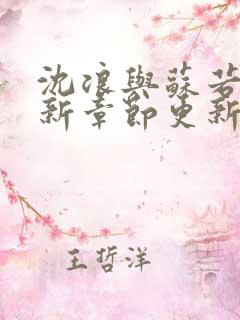 沈浪與蘇若
新章節更新
王哲洋